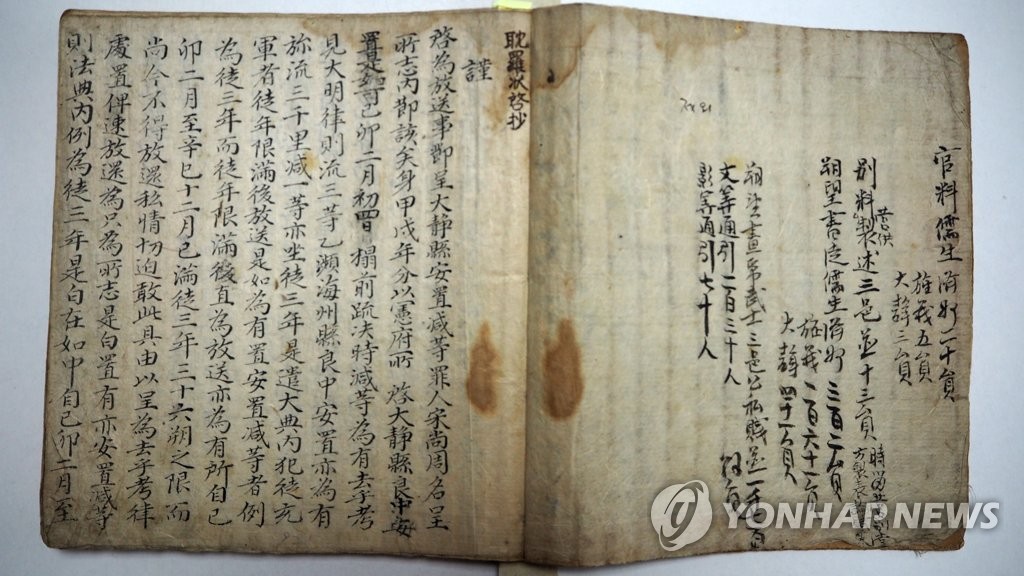 官料儒生 濟州二十員
旌義五員
大靜三員
別料製述三邑並十三員
朔望書徒儒生 濟州三百二十六員
旌義一百六十一員
大靜四十一員
文等通引二百三十人
影等通引七十人
耽羅狀啓抄
謹
啓為放送事卽呈大靜縣安置减等罪人宋尚周名呈
所志內卽該矣身甲戌年分以憲府所 啓大靜縣良中安
置是如可己卯二月初四日 榻前疏决特减等為有去乎考
見大明律則流三等乙瀕海州縣良中安置亦為有
旀流三千里减一等亦坐徒三年是遣大典內犯徒充
軍者徒年限滿後放送是如為有置安置减等者例
為徒三年而徒年限滿後直為放送亦為有所自己
卯二月至辛巳十二月已滿徒三年三十六朔之限而
尚今不得放還私情切迫敢此具由以呈為去乎考律
處置俾速放還為只為所志是白置有亦安置减等
則法典內例為徒三年是白在如中自己卯二月至
YONHAP NEWS